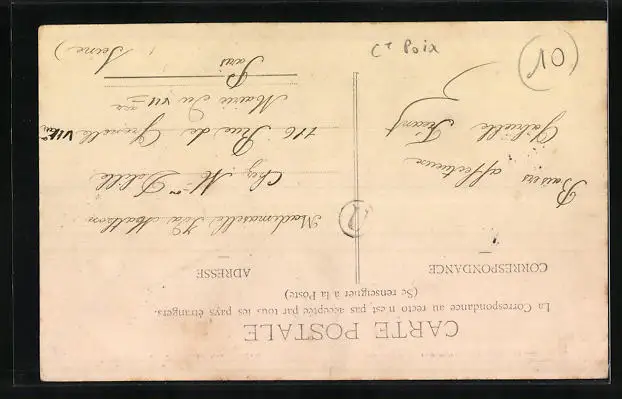 CARTE POSTALE
La Correspondance au recto n'est pas acceptée par tous les pays étrangers.
(Se renseigner à la Poste)
CORRESPONDANCE
ADRESSE
Baisers affectueux
Gabrielle
Mademoiselle
Chez Mme Delille
116 Rue de Grenelle VII
Mairie du VII
Paris
(Seine)
Ct Poix
10